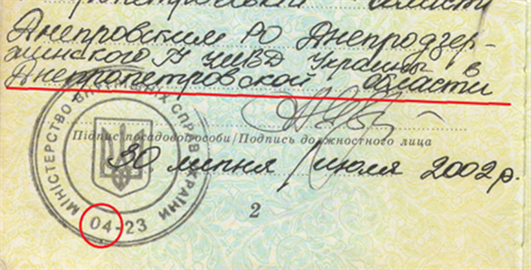 области
Днепровским РО Днепродзер-
жинского УМВД Украины в
Днепропетровской области
Підпис посадової особи/Подпись должностного лица
30 липня/июля 2002 р.
МІНІСТЕРСТВО ВНУТРІШНІХ СПРАВ УКРАЇНИ
04-23
2